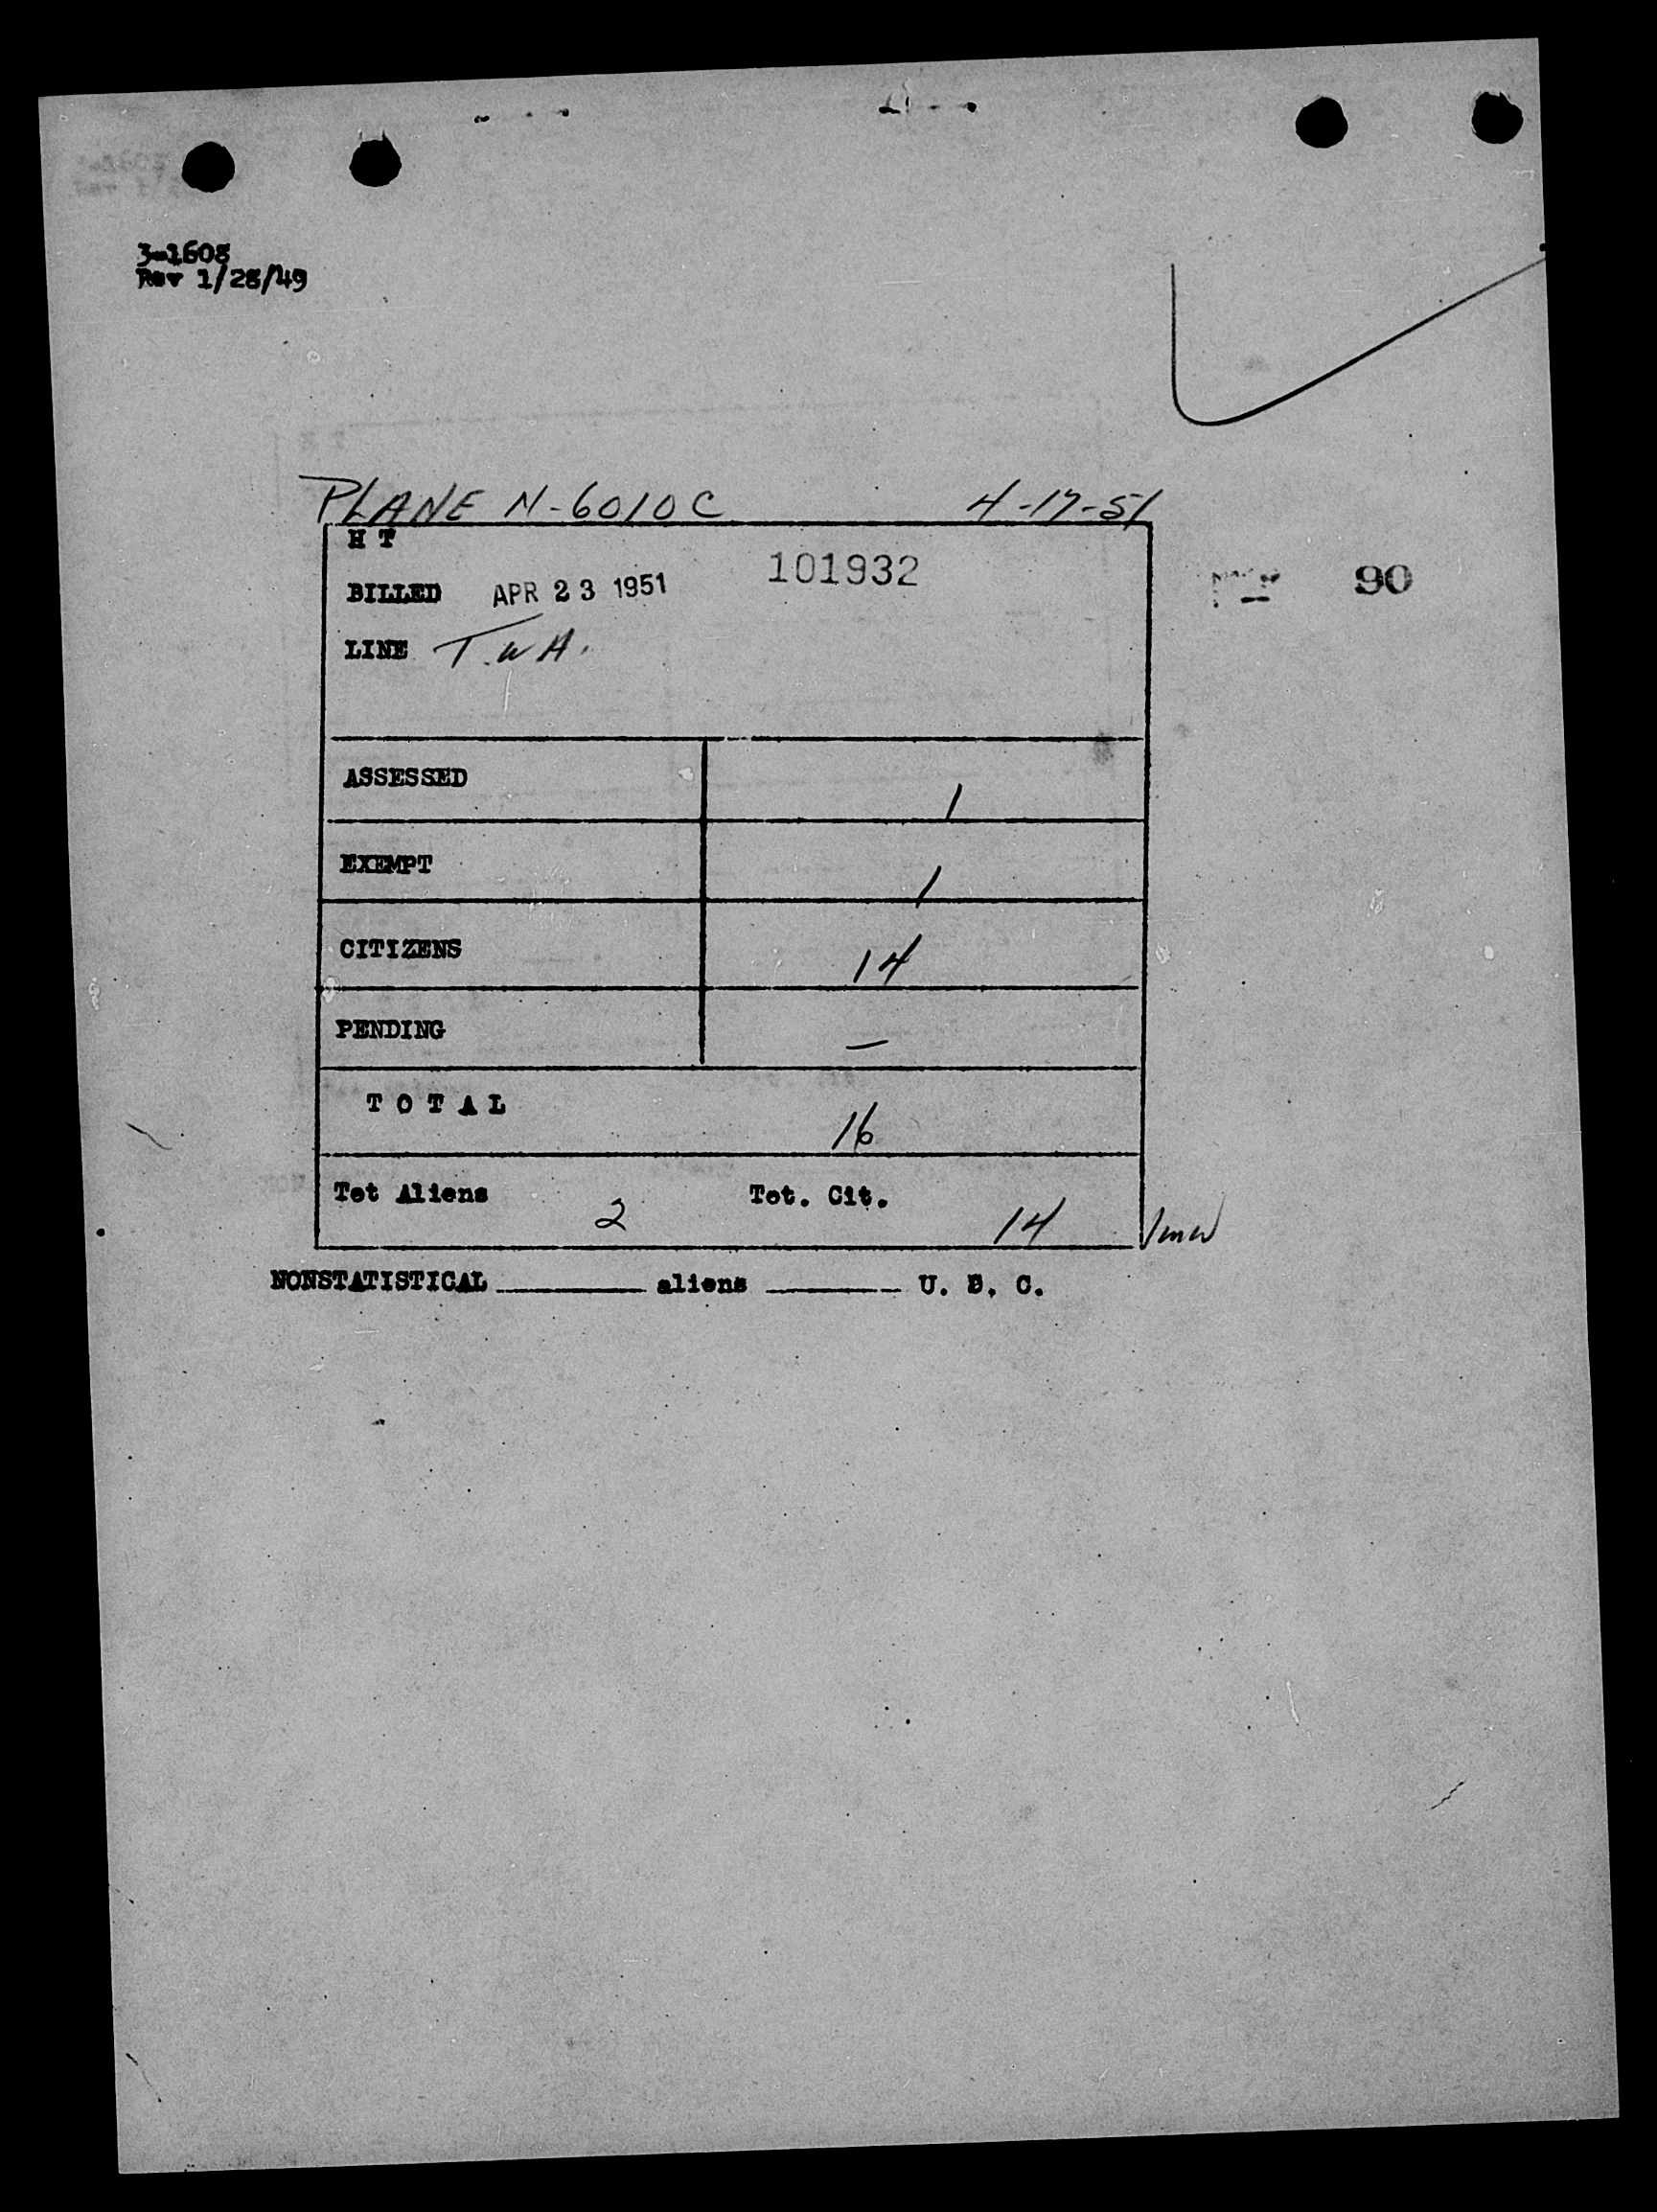 3-1608
Rev 1/28/49
PLANE N-6010C 4-17-51
H T
101932
BILLED APR 23 1951
90
LINE T.W.A.
ASSESSED 1
EXEMPT 1
CITIZENS 14
PENDING —
T O T A L 16
Tot Aliens 2 Tot. Cit. 14
NONSTATISTICAL ________ aliens ________ U. S. C.